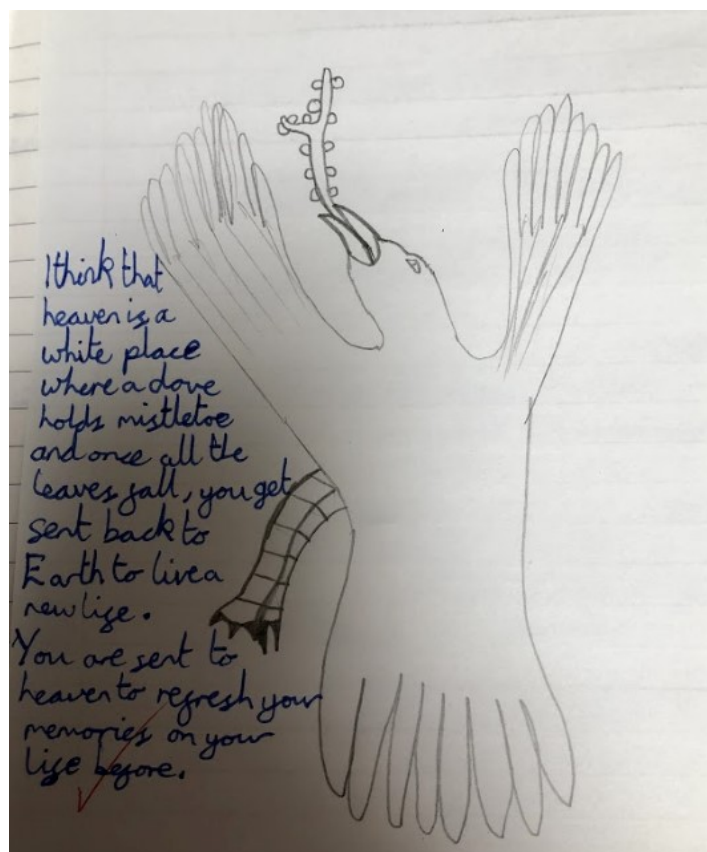 I think that
heaven is a
white place
where a dove
holds mistletoe
and once all the
leaves fall, you get
sent back to
Earth to live a
new life.
You are sent to
heaven to refresh your
memories on your
life before.